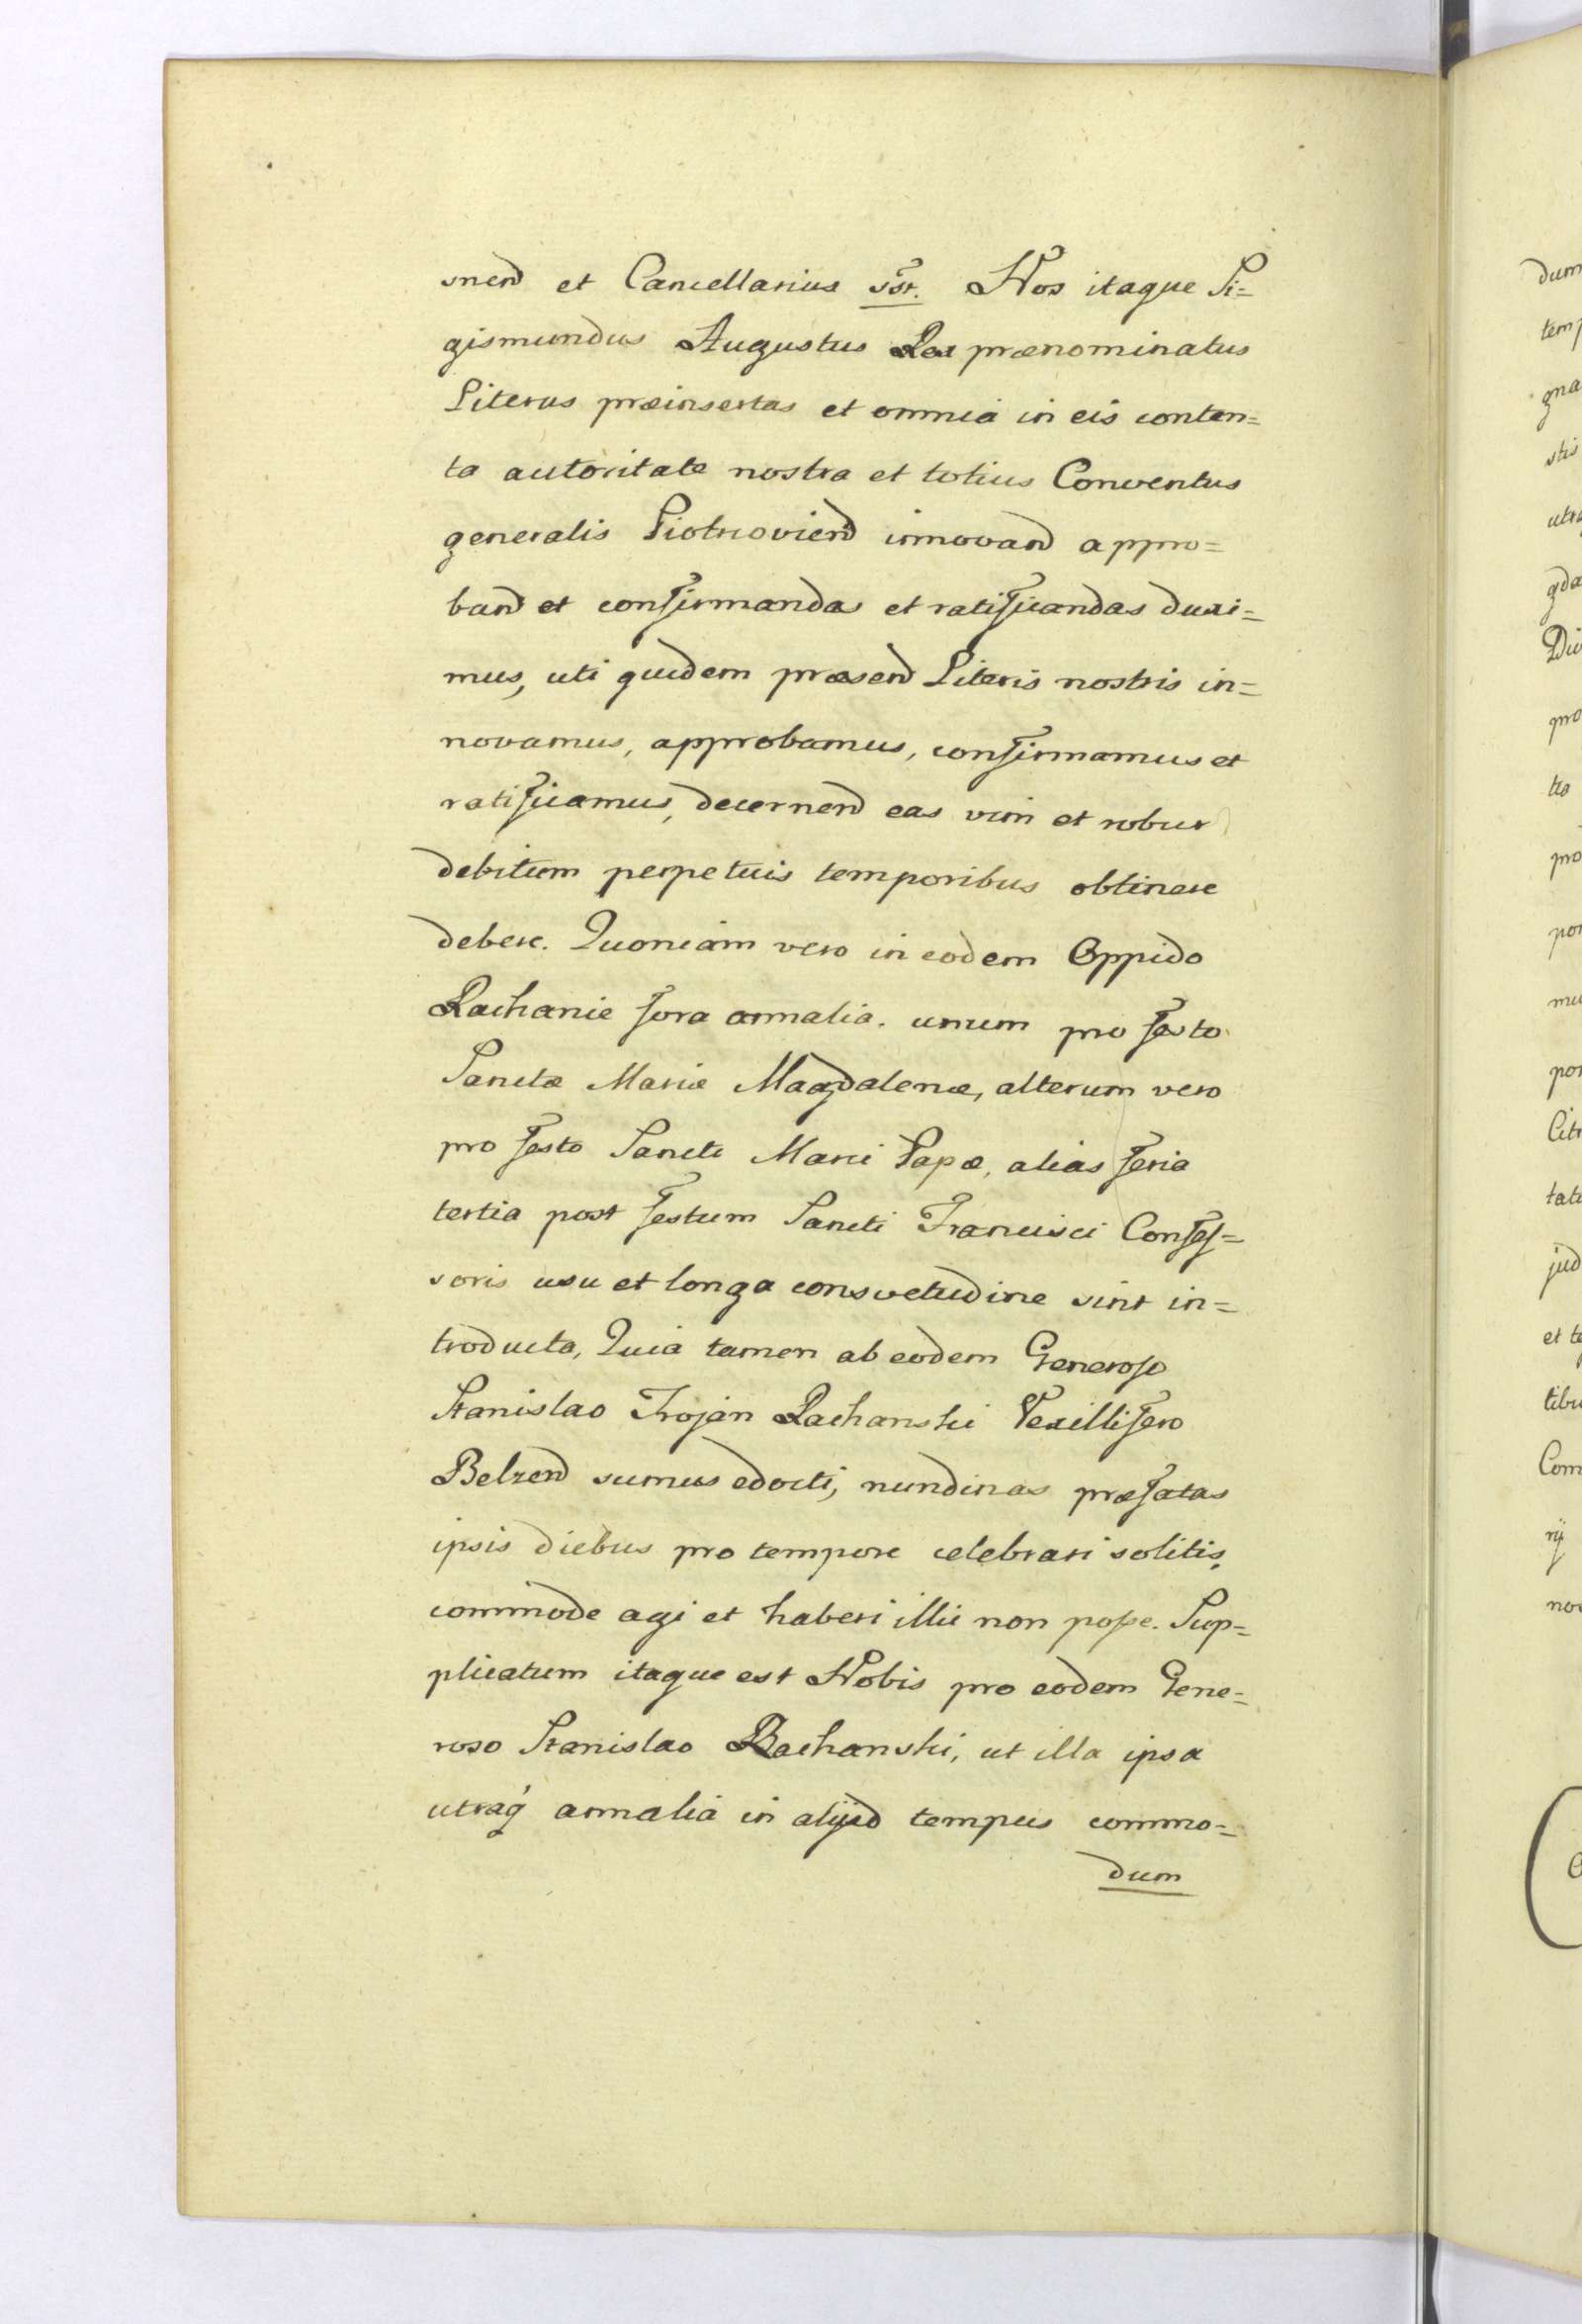 snen et Cancellarius sst. Nos itaque Si=
gismundus Augustus Rex prænominatus
Literas præinsertas et omnia in eis conten=
ta autoritate nostra et totius Conventus
generalis Piotrcovien innovand appro=
band et confirmandas et ratificandas duxi=
mus, uti quidem præsend Literis nostris in=
novamus, approbamus, confirmamus et
ratificamus, decernend eas vim et robur
debitum perpetuis temporibus obtinere
debere. Quoniam vero in eodem Oppido
Rachanie fora annalia. unum pro festo
Sanctæ Mariæ Magdalenæ, alterum vero
pro festo Sancti Marci Papæ, alias feria
tertia post festum Sancti Francisci Confes=
soris usu et longa consvetudine sint in=
troducta, Quia tamen ab eodem Generoso
Stanislao Trojan Rachanski Vexillifero
Belzen sumus edocti, nundinas præfatas
ipsis diebus pro tempore celebrari solitis,
commode agi et haberi illic non posse. Sup=
plicatum itaque est Nobis pro eodem Gene=
roso Stanislao Rachanski, ut illa ipsa
utraq́ annalia in aliud tempus commo=
dum
dum
temp
gna
stis
utra
gda
Diu
pro
tro
pro
por
mu
por
Citr
tate
jud
et te
tibu
Com
rij
nos